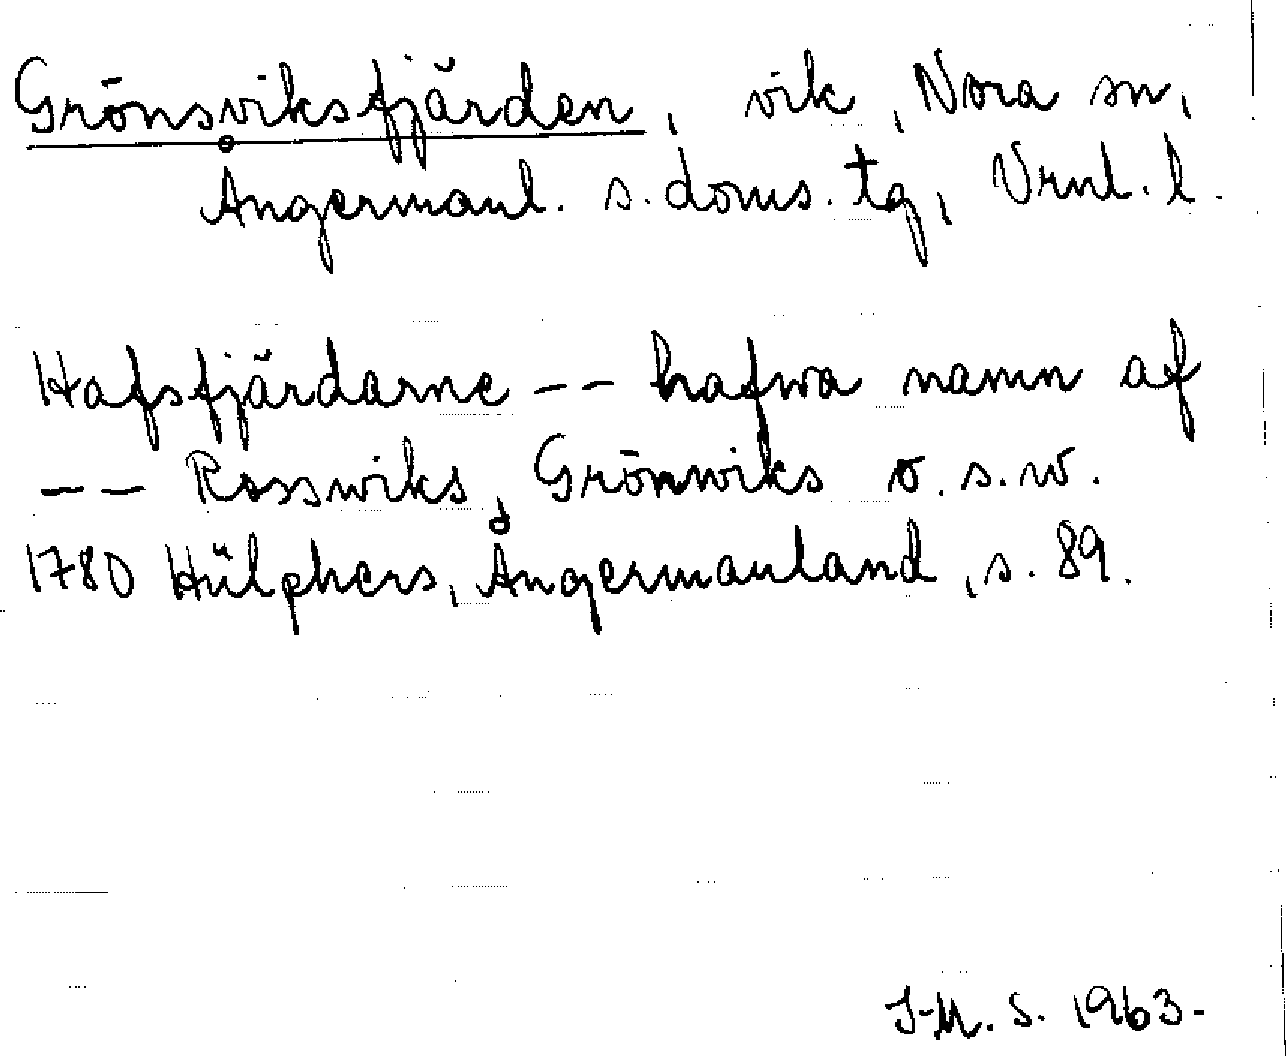 Grönsviksfjärden, vik, Nora sn,
Ångermanl. s. doms. tg, Vrnl. l.
Hafsfjärdarne -- hafwa namn af
-- Rosswiks, Grönwiks o. s. w.
1780 Hülphers, Ångermanland, s. 89.
I-M. S. 1963.